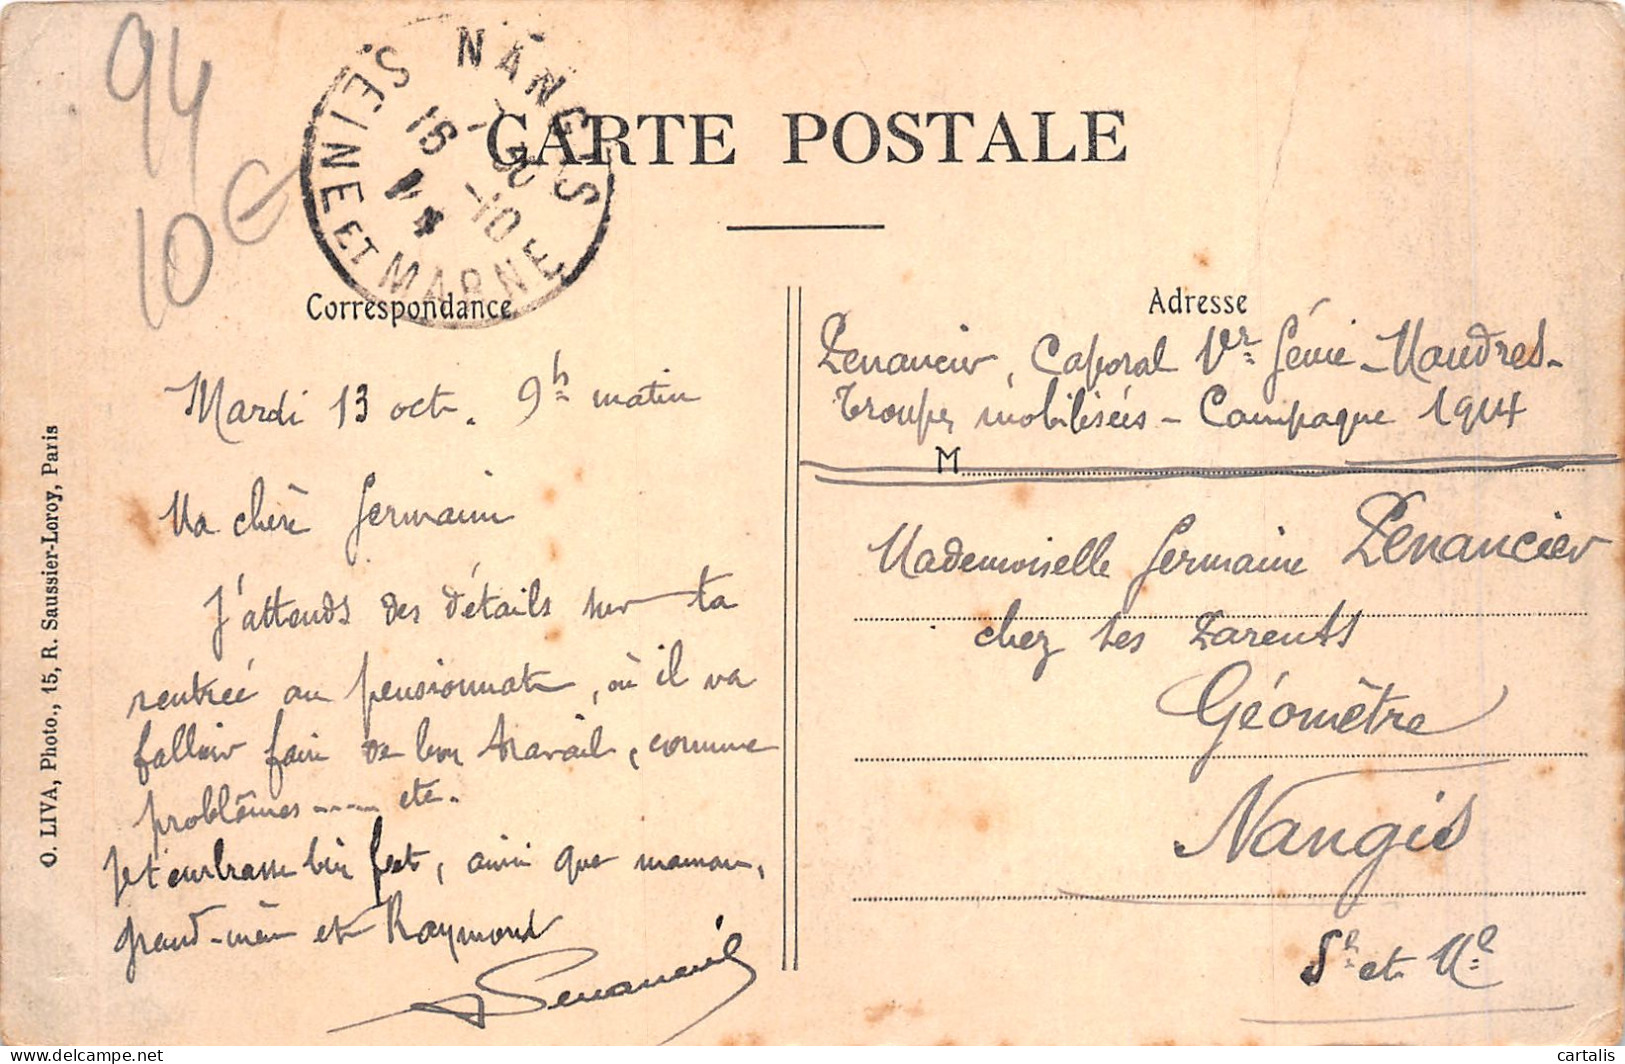 94
10 €
NANGIS
SEINE ET MARNE
16 -10
CARTE POSTALE
Correspondance
Adresse
Mardi 13 oct. 9h matin
Ma chère Germaine
J'attends des détails sur ta
rentrée au pensionnat, où il va
falloir faire de bon travail, comme
problèmes ---- etc.
Je t'embrasse bien fort, ainsi que maman,
grand-mère et Raymond
Penancier
Penancier, Caporal 1er Génie - Mandres -
Troupes mobilisées - Campagne 1914
M
Mademoiselle Germaine Penancier
chez ses Parents
Géomètre
Nangis
Se et Me
O. LIVA, Photo., 15, R. Saussier-Leroy, Paris
delcampe.net
cartalis